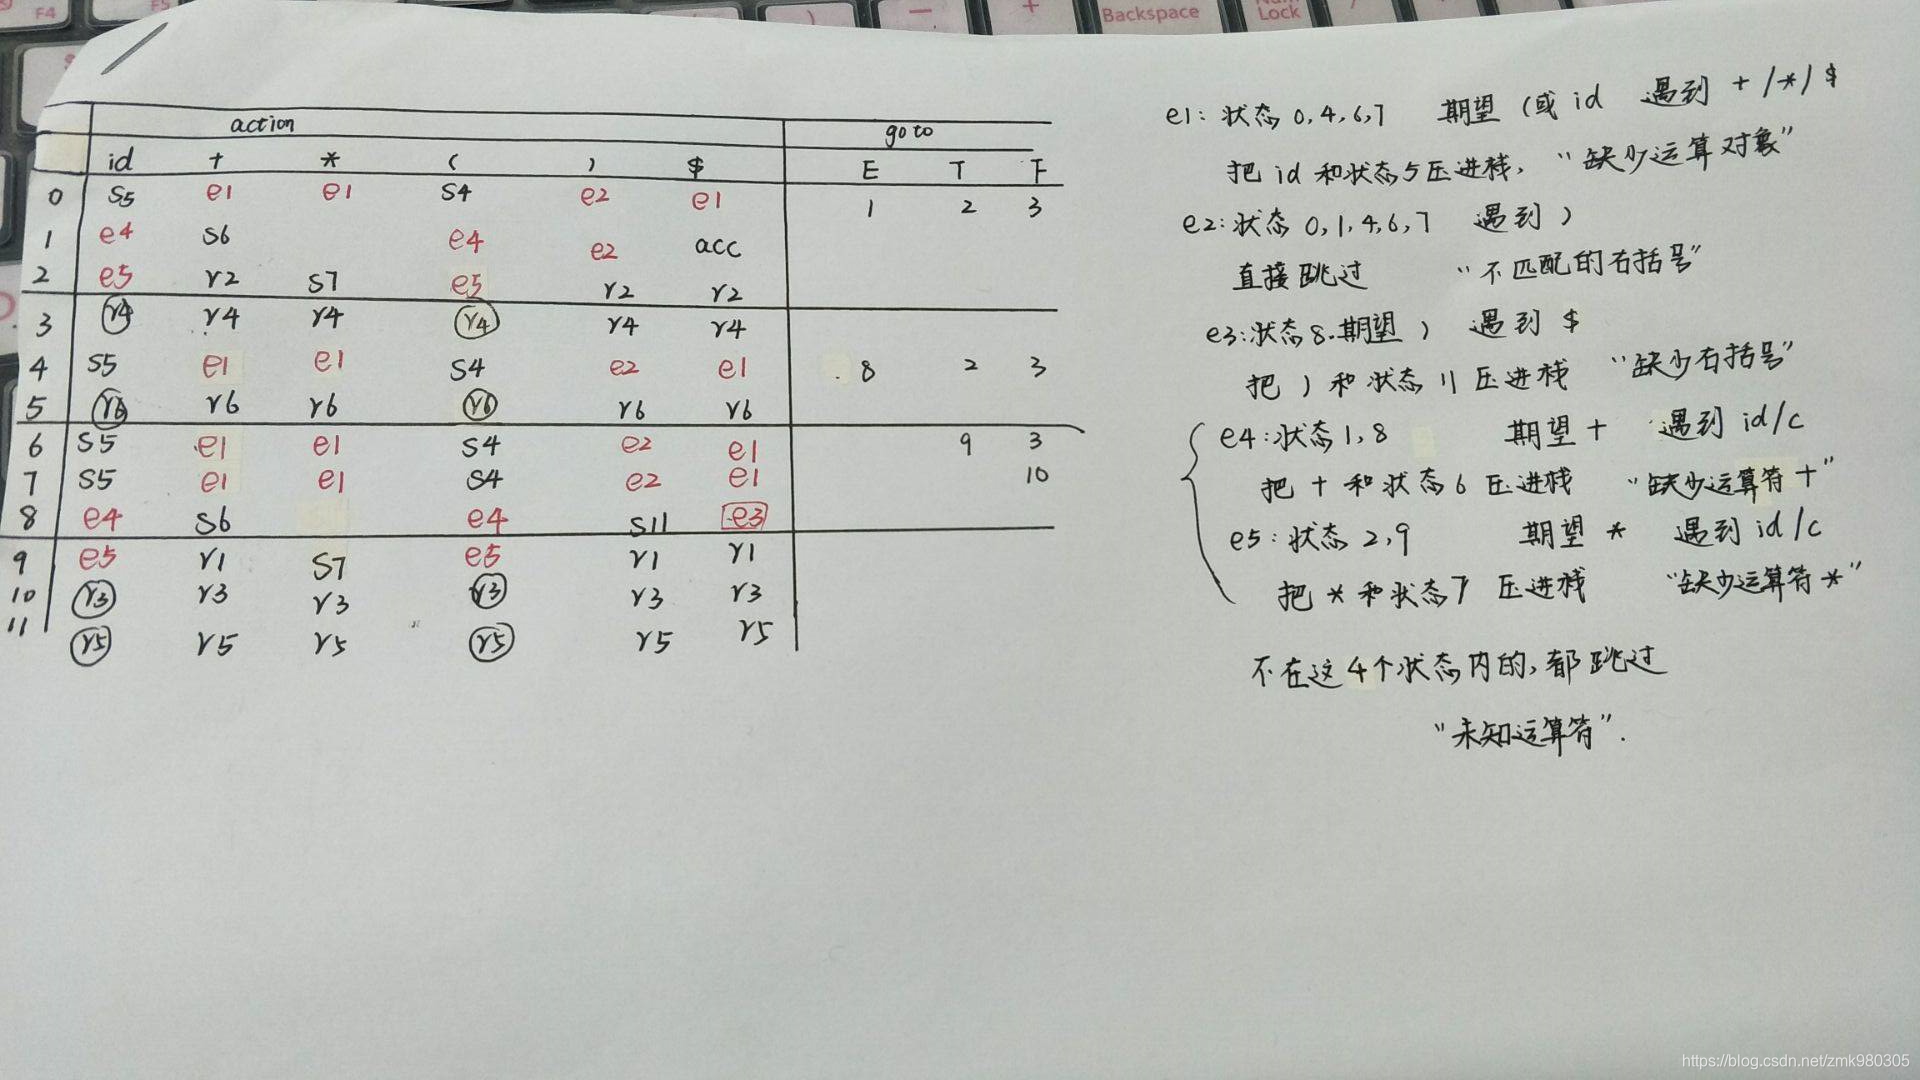 F4
F5
Backspace
Num
Lock
action
goto
id + * ( ) $ E T F
0 S5 e1 e1 S4 e2 e1 1 2 3
1 e4 S6 e4 e2 acc
2 e5 r2 S7 e5 r2 r2
3 r4 r4 r4 r4 r4 r4
4 S5 e1 e1 S4 e2 e1 8 2 3
5 r6 r6 r6 r6 r6 r6
6 S5 e1 e1 S4 e2 e1 9 3
7 S5 e1 e1 S4 e2 e1 10
8 e4 S6 e4 S11 e3
9 e5 r1 S7 e5 r1 r1
10 r3 r3 r3 r3 r3 r3
11 r5 r5 r5 r5 r5 r5
e1: 状态 0,4,6,7 期望 (或 id 遇到 + / * / $
把 id 和状态5压进栈, "缺少运算对象"
e2: 状态 0,1,4,6,7 遇到 )
直接跳过 "不匹配的右括号"
e3: 状态8.期望 ) 遇到 $
把 ) 和状态 11 压进栈 "缺少右括号"
e4: 状态1,8 期望 + 遇到 id/(
把 + 和状态 6 压进栈 "缺少运算符 +"
e5: 状态 2,9 期望 * 遇到 id/(
把 * 和状态7 压进栈 "缺少运算符 *"
不在这4个状态内的,都跳过
"未知运算符".
https://blog.csdn.net/zmk980305